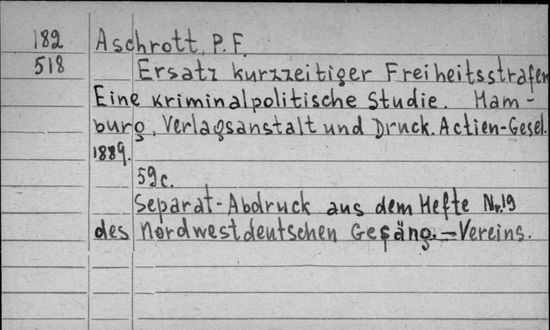 182 Aschrott, P.F.
518 Ersatz kurzzeitiger Freiheitsstrafen
Eine kriminalpolitische Studie. Ham-
burg, Verlagsanstalt und Druck. Actien-Gesel.
1889.
59c.
Separat-Abdruck aus dem Hefte Nr.19
des Nordwestdeutschen Gefäng.-Vereins.